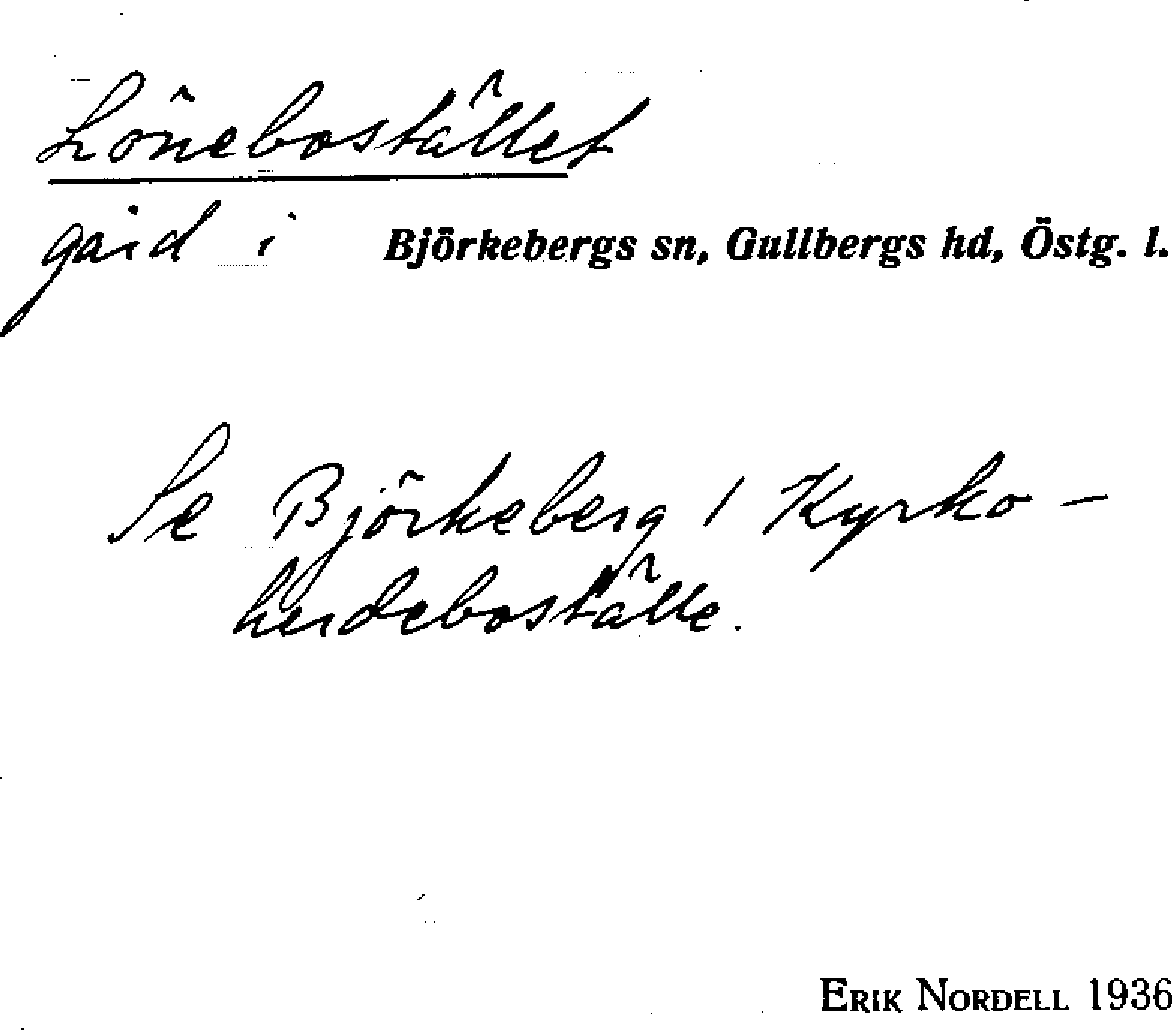 Lönebostället
gård i Björkebergs sn, Gullbergs hd, Östg. l.
Se Björkeberg / Kyrko-
herdeboställe.
ERIK NORDELL 1936